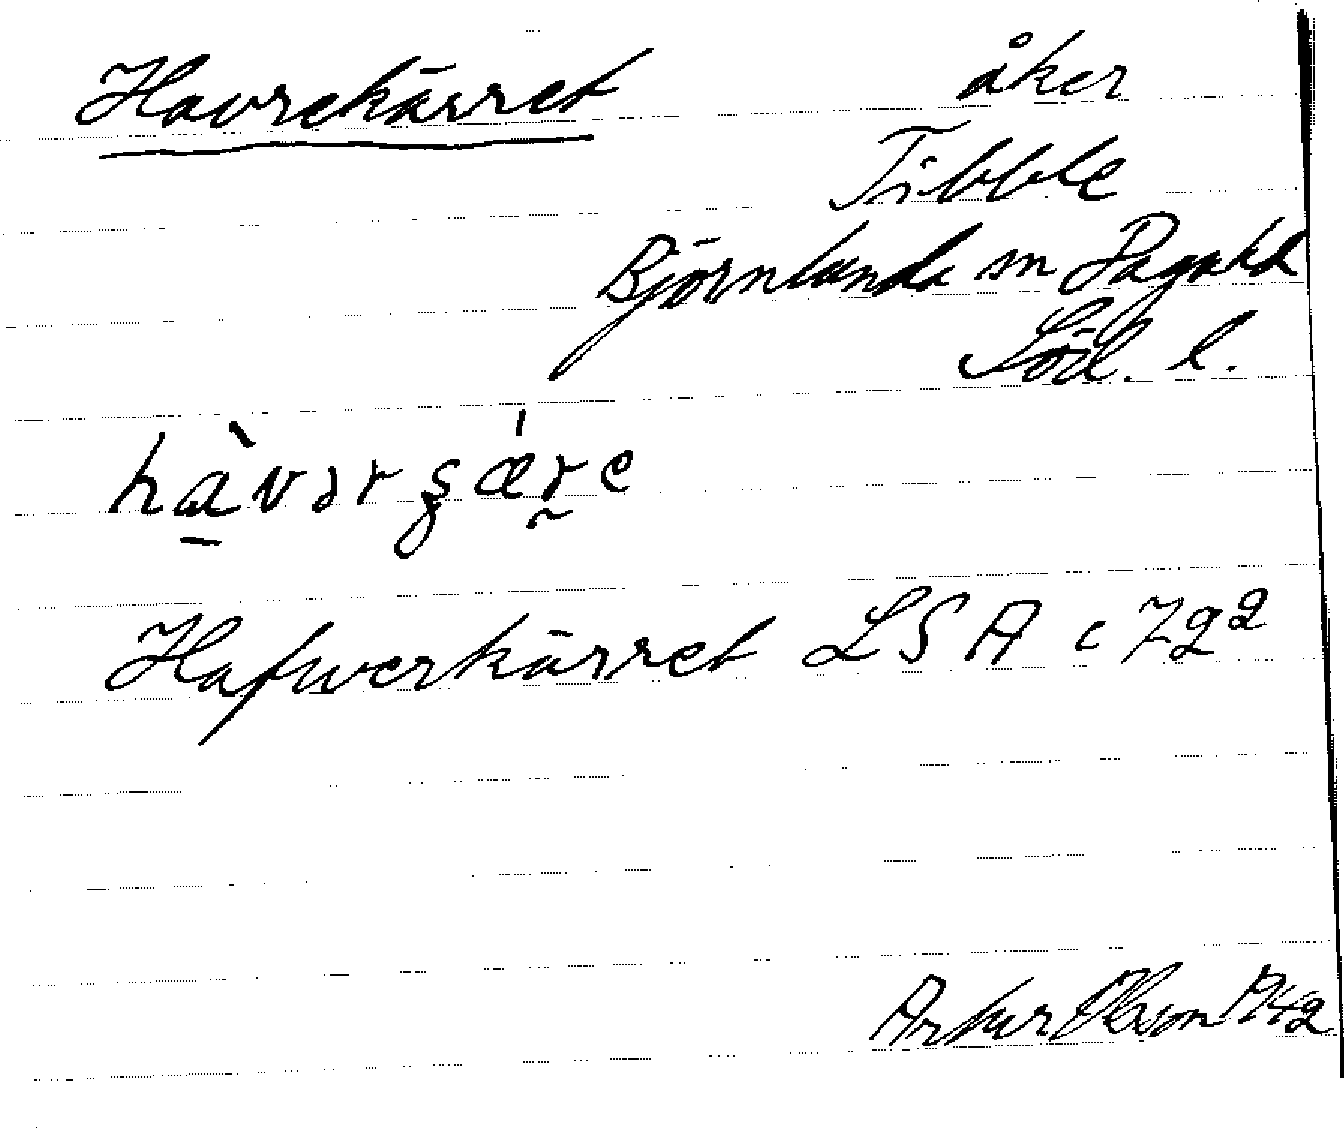 Havrekärret åker
Tibble
Björnlunda sn Daga hd
Söd. l.
hàvərʂǽre
Hafwerkärret LSA c 72²
Artur Olsson 1942